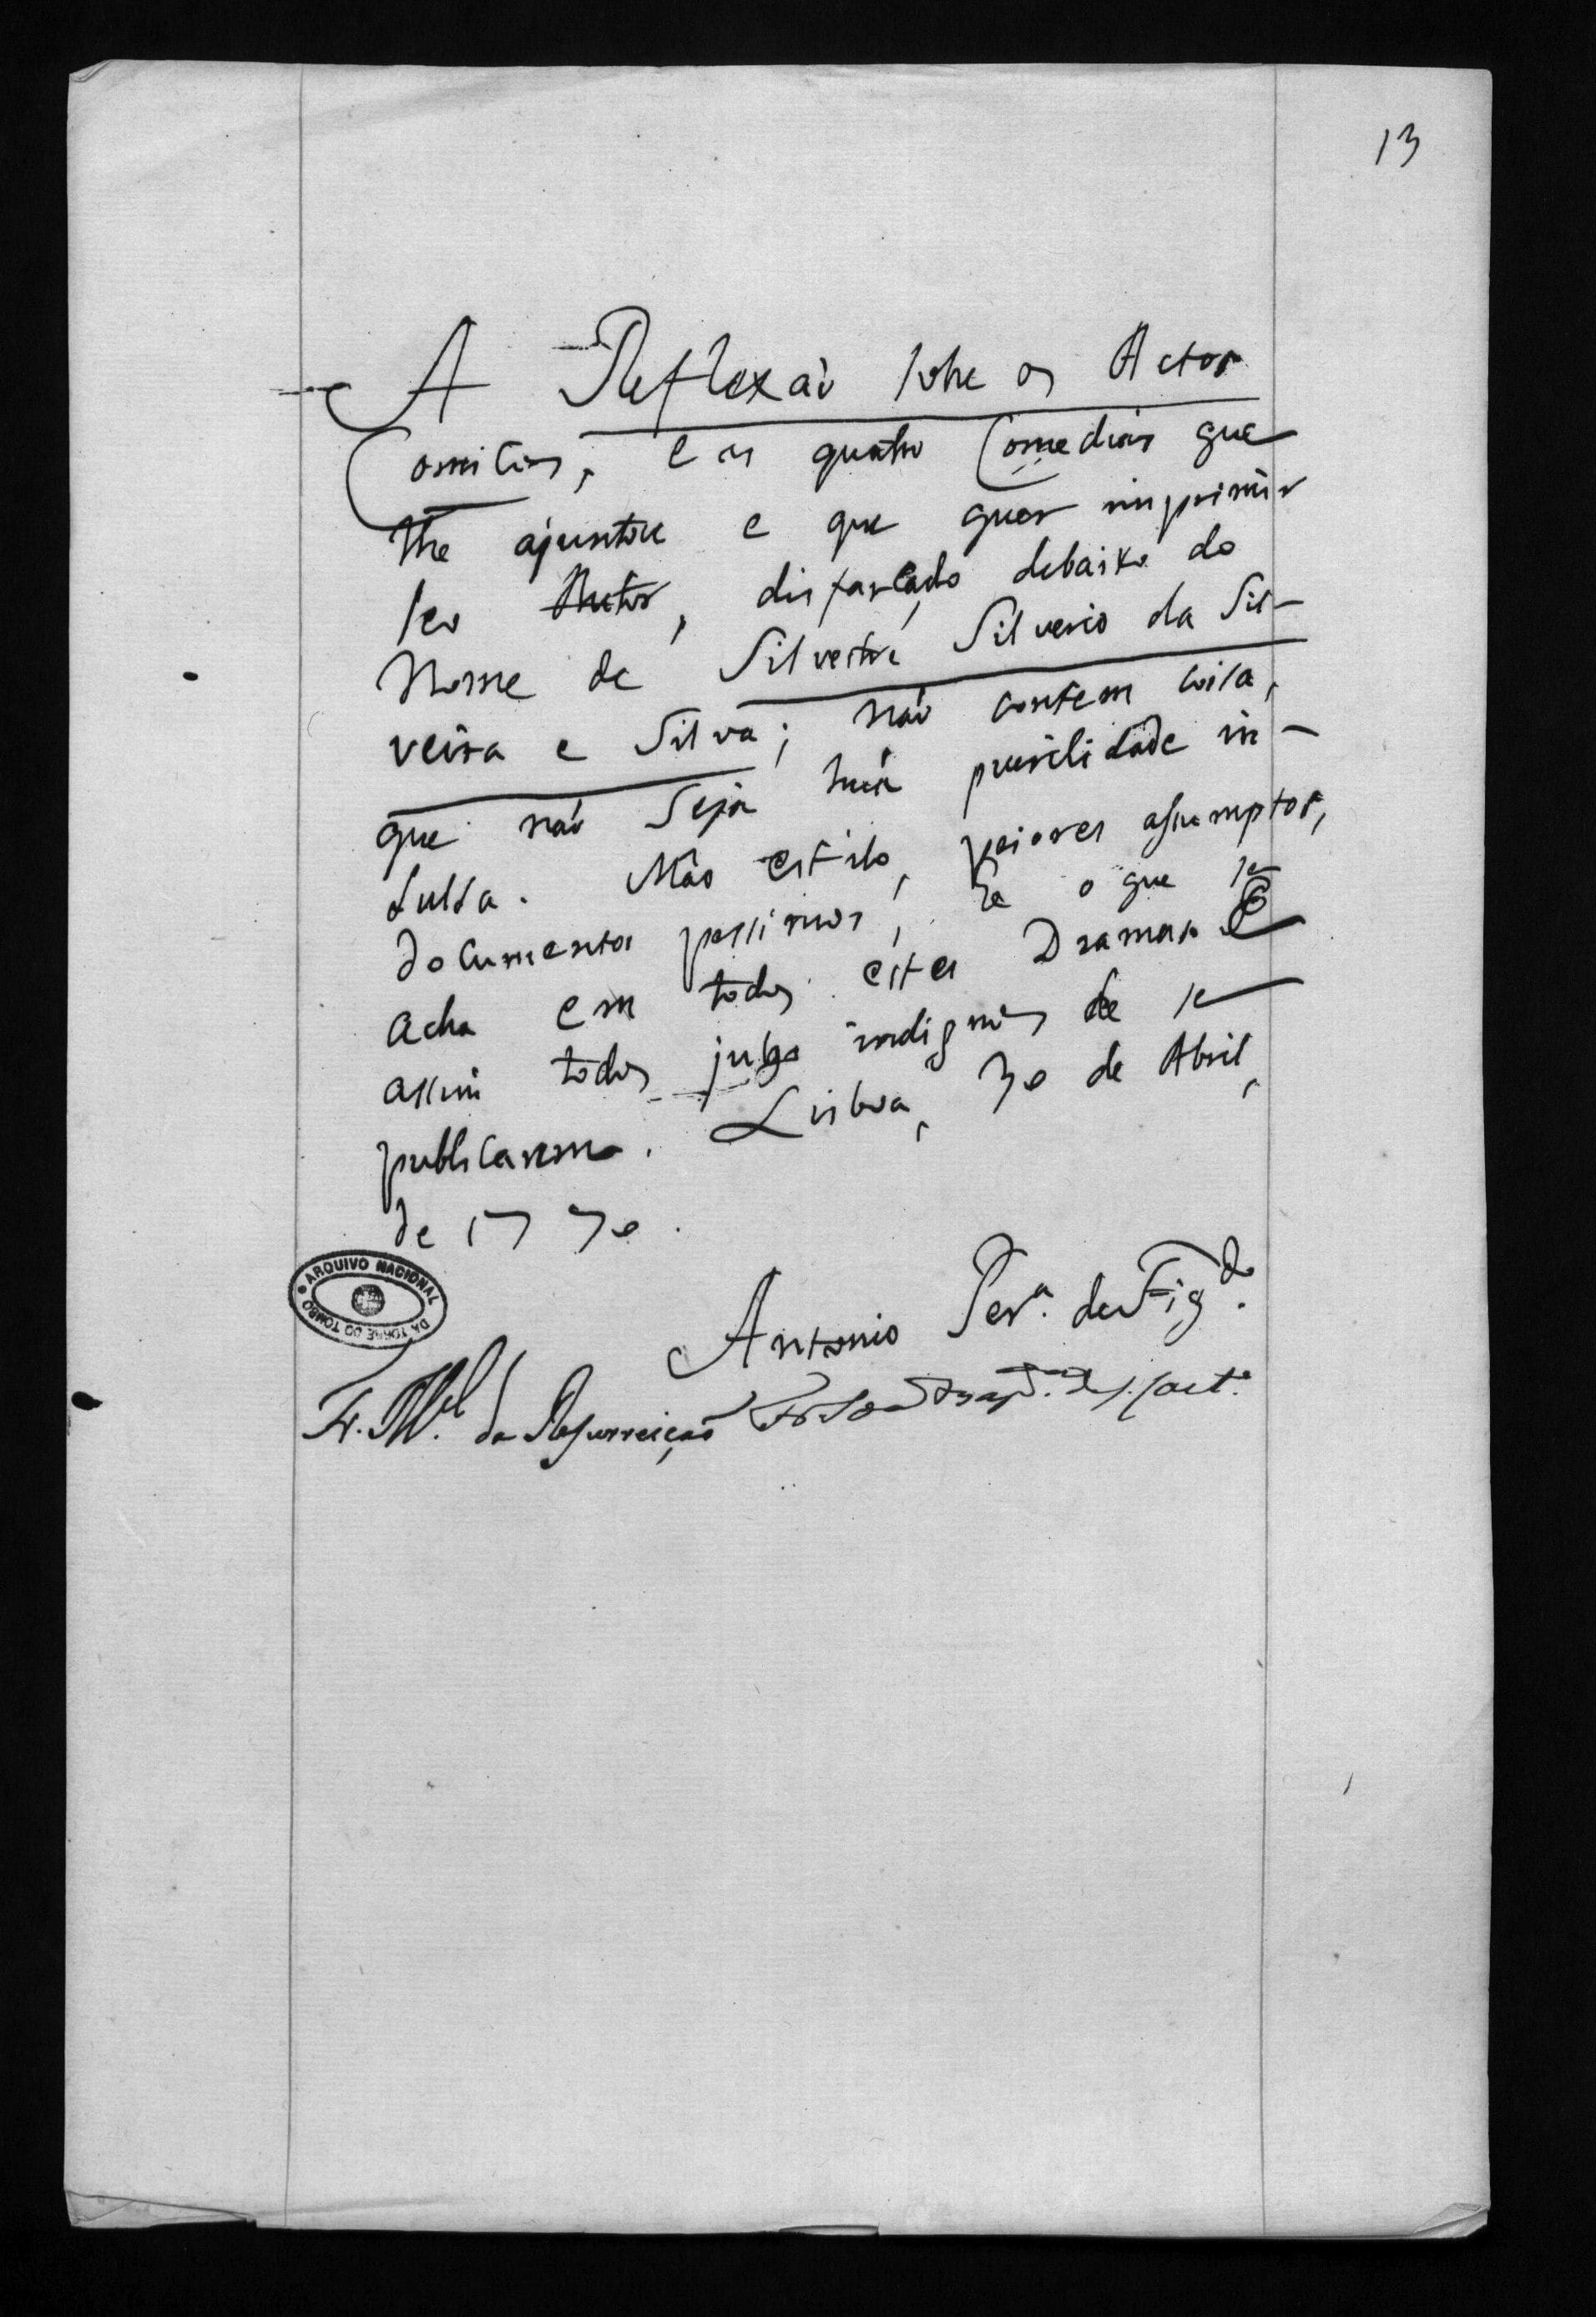 13
A Reflexaõ sobre os Actos
Comicos, e as quatro Comedias que
lhe ajuntou e que quer imprimir
seo Autor, disfarçado debaixo do
Nome de Silvestre Silverio da Sil-
veira e Silva; naõ contem coisa,
que naõ seja huã puerilidade in-
sulsa. Mao estilo, peiores assumptos,
documentos pessimos, he o que se
acha em todos estes Dramas. E
assim todos julgo indignos de se
publicarem. Lisboa, 30 de Abril,
de 1770.
ARQUIVO NACIONAL DA TORRE DO TOMBO
Antonio Per.ª de Fig.do
Fr. M.el da Resurreiçaõ Fr.